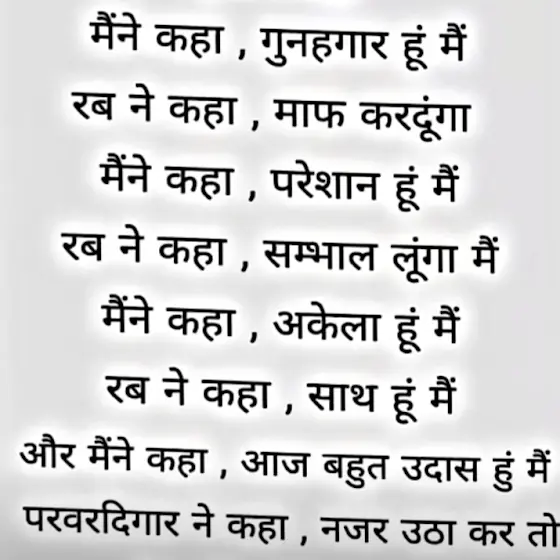 मैंने कहा , गुनहगार हूं मैं
रब ने कहा , माफ करदूंगा
मैंने कहा , परेशान हूं मैं
रब ने कहा , सम्भाल लूंगा मैं
मैंने कहा , अकेला हूं मैं
रब ने कहा , साथ हूं मैं
और मैंने कहा , आज बहुत उदास हुं मैं
परवरदिगार ने कहा , नजर उठा कर तो